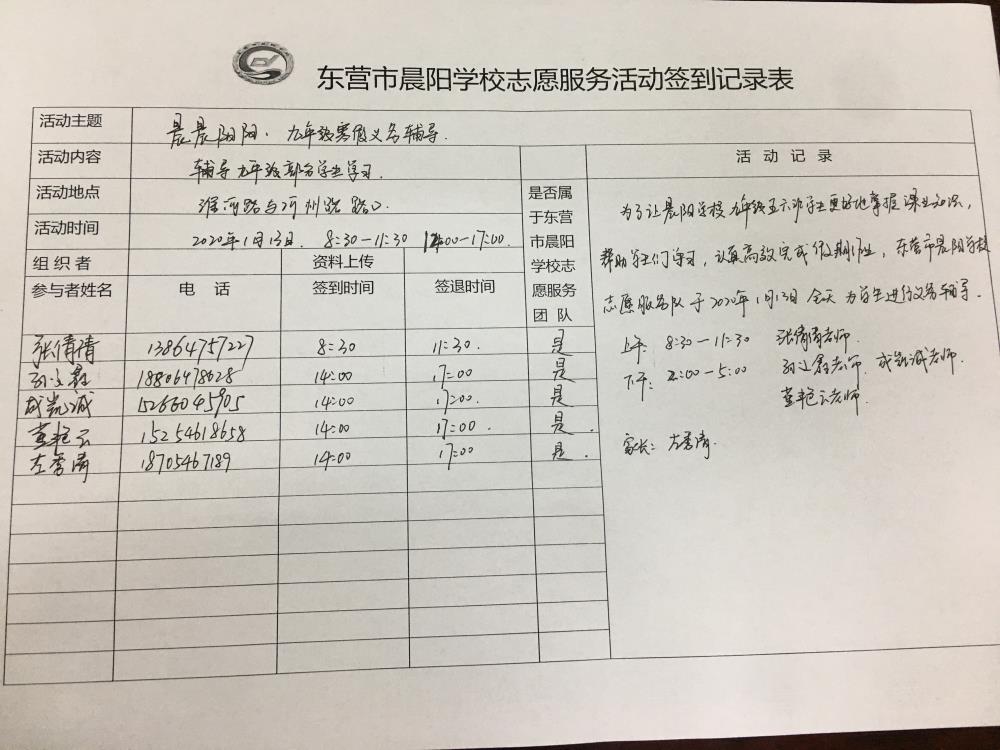 东营市晨阳学校志愿服务活动签到记录表
活动主题 晨晨阳阳·九年级寒假义务辅导.
活动内容 辅导九年级部分学生学习.
活动地点 淮河路与沂州路路口
活动时间 2020年1月13日. 8:30-11:30 14:00-17:00.
组织者 资料上传
参与者姓名 电 话 签到时间 签退时间
是否属
于东营
市晨阳
学校志
愿服务
团 队
张倩倩 13864757227 8:30 11:30. 是
孙 18806478628 14:00 17:00 是
成凯诚 15266045905 14:00 17:00. 是
董艳云 15254618658 14:00 17:00. 是.
左秀清 18705467189 14:00 17:00 是.
活 动 记 录
为了让晨阳学校九年级五六班学生更好地掌握课业知识,
帮助学生们学习,认真高效完成假期作业,东营市晨阳学校
志愿服务队于2020年1月13日全天为学生进行义务辅导.
上午: 8:30-11:30 张倩倩老师.
下午: 2:00-5:00 孙 老师. 成凯诚老师.
董艳云老师.
家长: 左秀清.